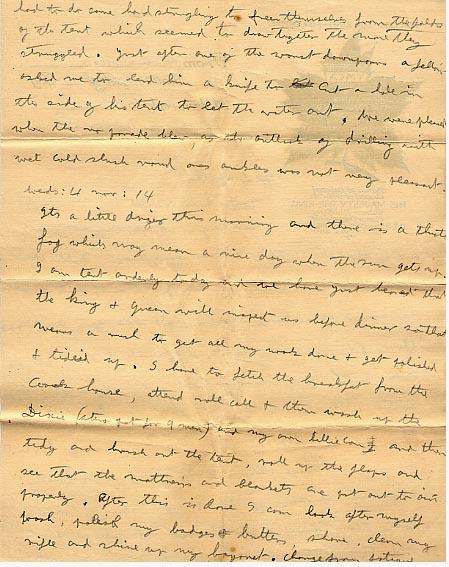 had to do some hard struggling to free themselves from the folds
of the tent which seemed to draw together the more they
struggled. Just after one of the worst downpours a fellow
asked me to lend him a knife to cut a hole in
the side of his tent to let the water out. We were pleased
when the no parade blew, as the outlook of drilling with
wet cold slush round ones ankles was not very pleasant.
Weds: 4 Nov: 14
Its a little drier this morning and there is a thick
fog which may mean a nice day when the sun gets up.
I am tent orderly today and we have just heard that
the King & Queen will inspect us before dinner so that
means a rush to get all my work done & get polished
& tidied up. I have to fetch the breakfast from the
Cook house, attend roll call & then wash up the
Dixie (stew pot for 9 men) and my own billie can and then
tidy and brush out the tent, roll up the flaps and
see that the mattresses and blankets are put out to air
properly. After this is done I can look after myself
wash, polish my badges & buttons, shave, clean my
rifle and shine up my bayonet. Change from